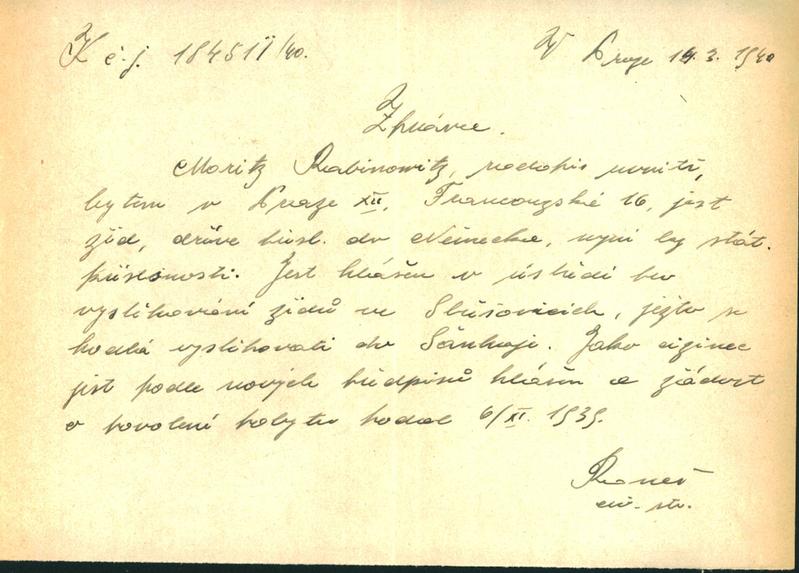 K č.j. 18451 II/40. V Praze 14.3.1940
Zpráva.
Moritz Rabinowitz, nadepis uvnitř,
bytem v Praze XII, Francouzské 16, jest
žid, dříve přísl. do Německa, nyní by stát.
příslušnosti. Jest hlášen v ústředí pro
vystěhování židů ve Střešovicích, ježto se
hodlá vystěhovati do Šanhaje. Jako cizinec
jest podle nových předpisů hlášen a žádost
o povolení pobytu podal 6/XI. 1939.